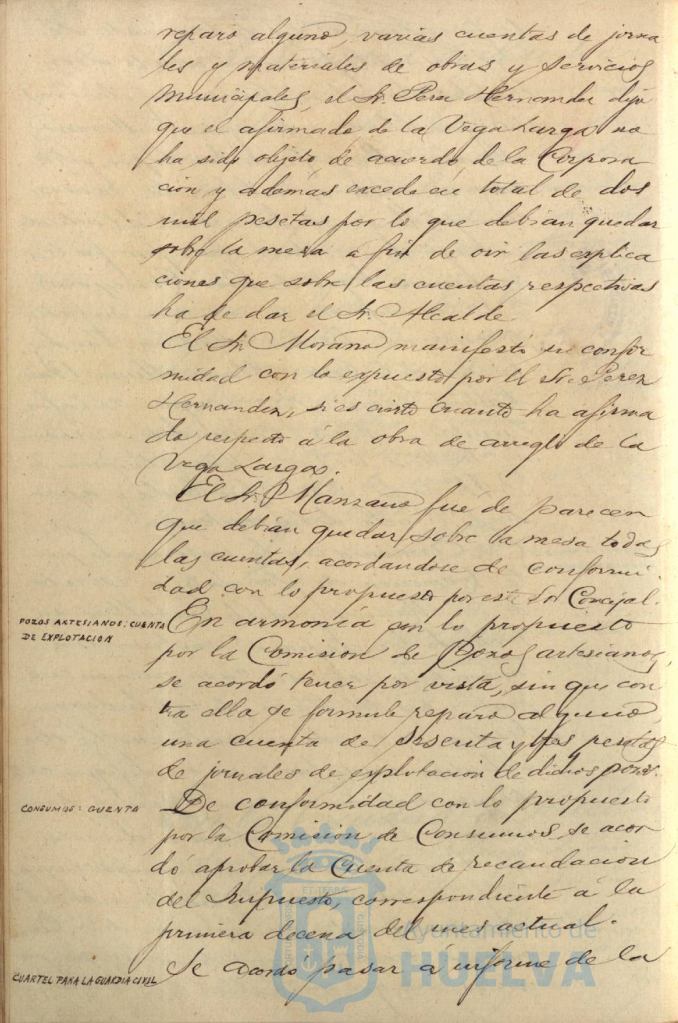 reparo alguno, varias cuentas de jorna
les y materiales de obras y servicios
Municipales, el Sr. Perez Hernandez dijo
que el afirmado de la Vega Larga no
ha sido objeto de acuerdo de la Corpora
ción y además excede en total de dos
mil pesetas por lo que debian quedar
sobre la mesa a fin de oir las explica
ciones que sobre las cuentas respectivas
ha de dar el Sr. Alcalde.
El Sr. Moraño manifestó su confor
midad con lo expuesto por el Sr. Perez
Hernandez, si es cierto cuanto ha afirma
do respecto á la obra de arreglo de la
Vega Larga.
El Sr. Manzano fué de parecer
que debian quedar sobre la mesa todas
las cuentas, acordandose de conformi
dad con lo propuesto por este Sor Concejal.
POZOS ARTESIANOS: CUENTA
DE EXPLOTACION
En armonía con lo propuesto
por la Comision de Pozos artesianos,
se acordó tener por vista, sin que con
tra ella se formule reparo alguno,
una cuenta de sesenta y tres pesetas
de jornales de explotacion de dichos pozos.
CONSUMOS: CUENTA
De conformidad con lo propuesto
por la Comision de Consumos, se acor
dó aprobar la Cuenta de recaudacion
del Impuesto, correspondiente á la
primera decena del mes actual.
CUARTEL PARA LA GUARDIA CIVIL
Se acordó pasar á informe de la
Ayuntamiento de
HUELVA